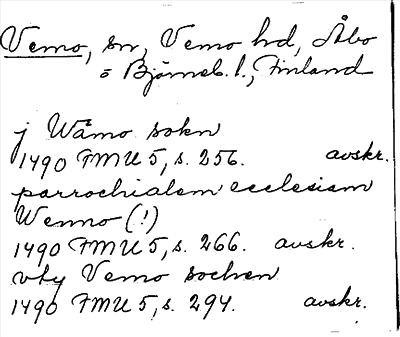 Vemo, sn, Vemo hd, Åbo
o Björneb. l., Finland
j Wämo sokn
1490 FMU 5, s. 256. avskr.
parrochialem ecclesiam
Wenno (!)
1490 FMU 5, s. 266. avskr.
vty Vemo sochen
1490 FMU 5, s. 294. avskr.